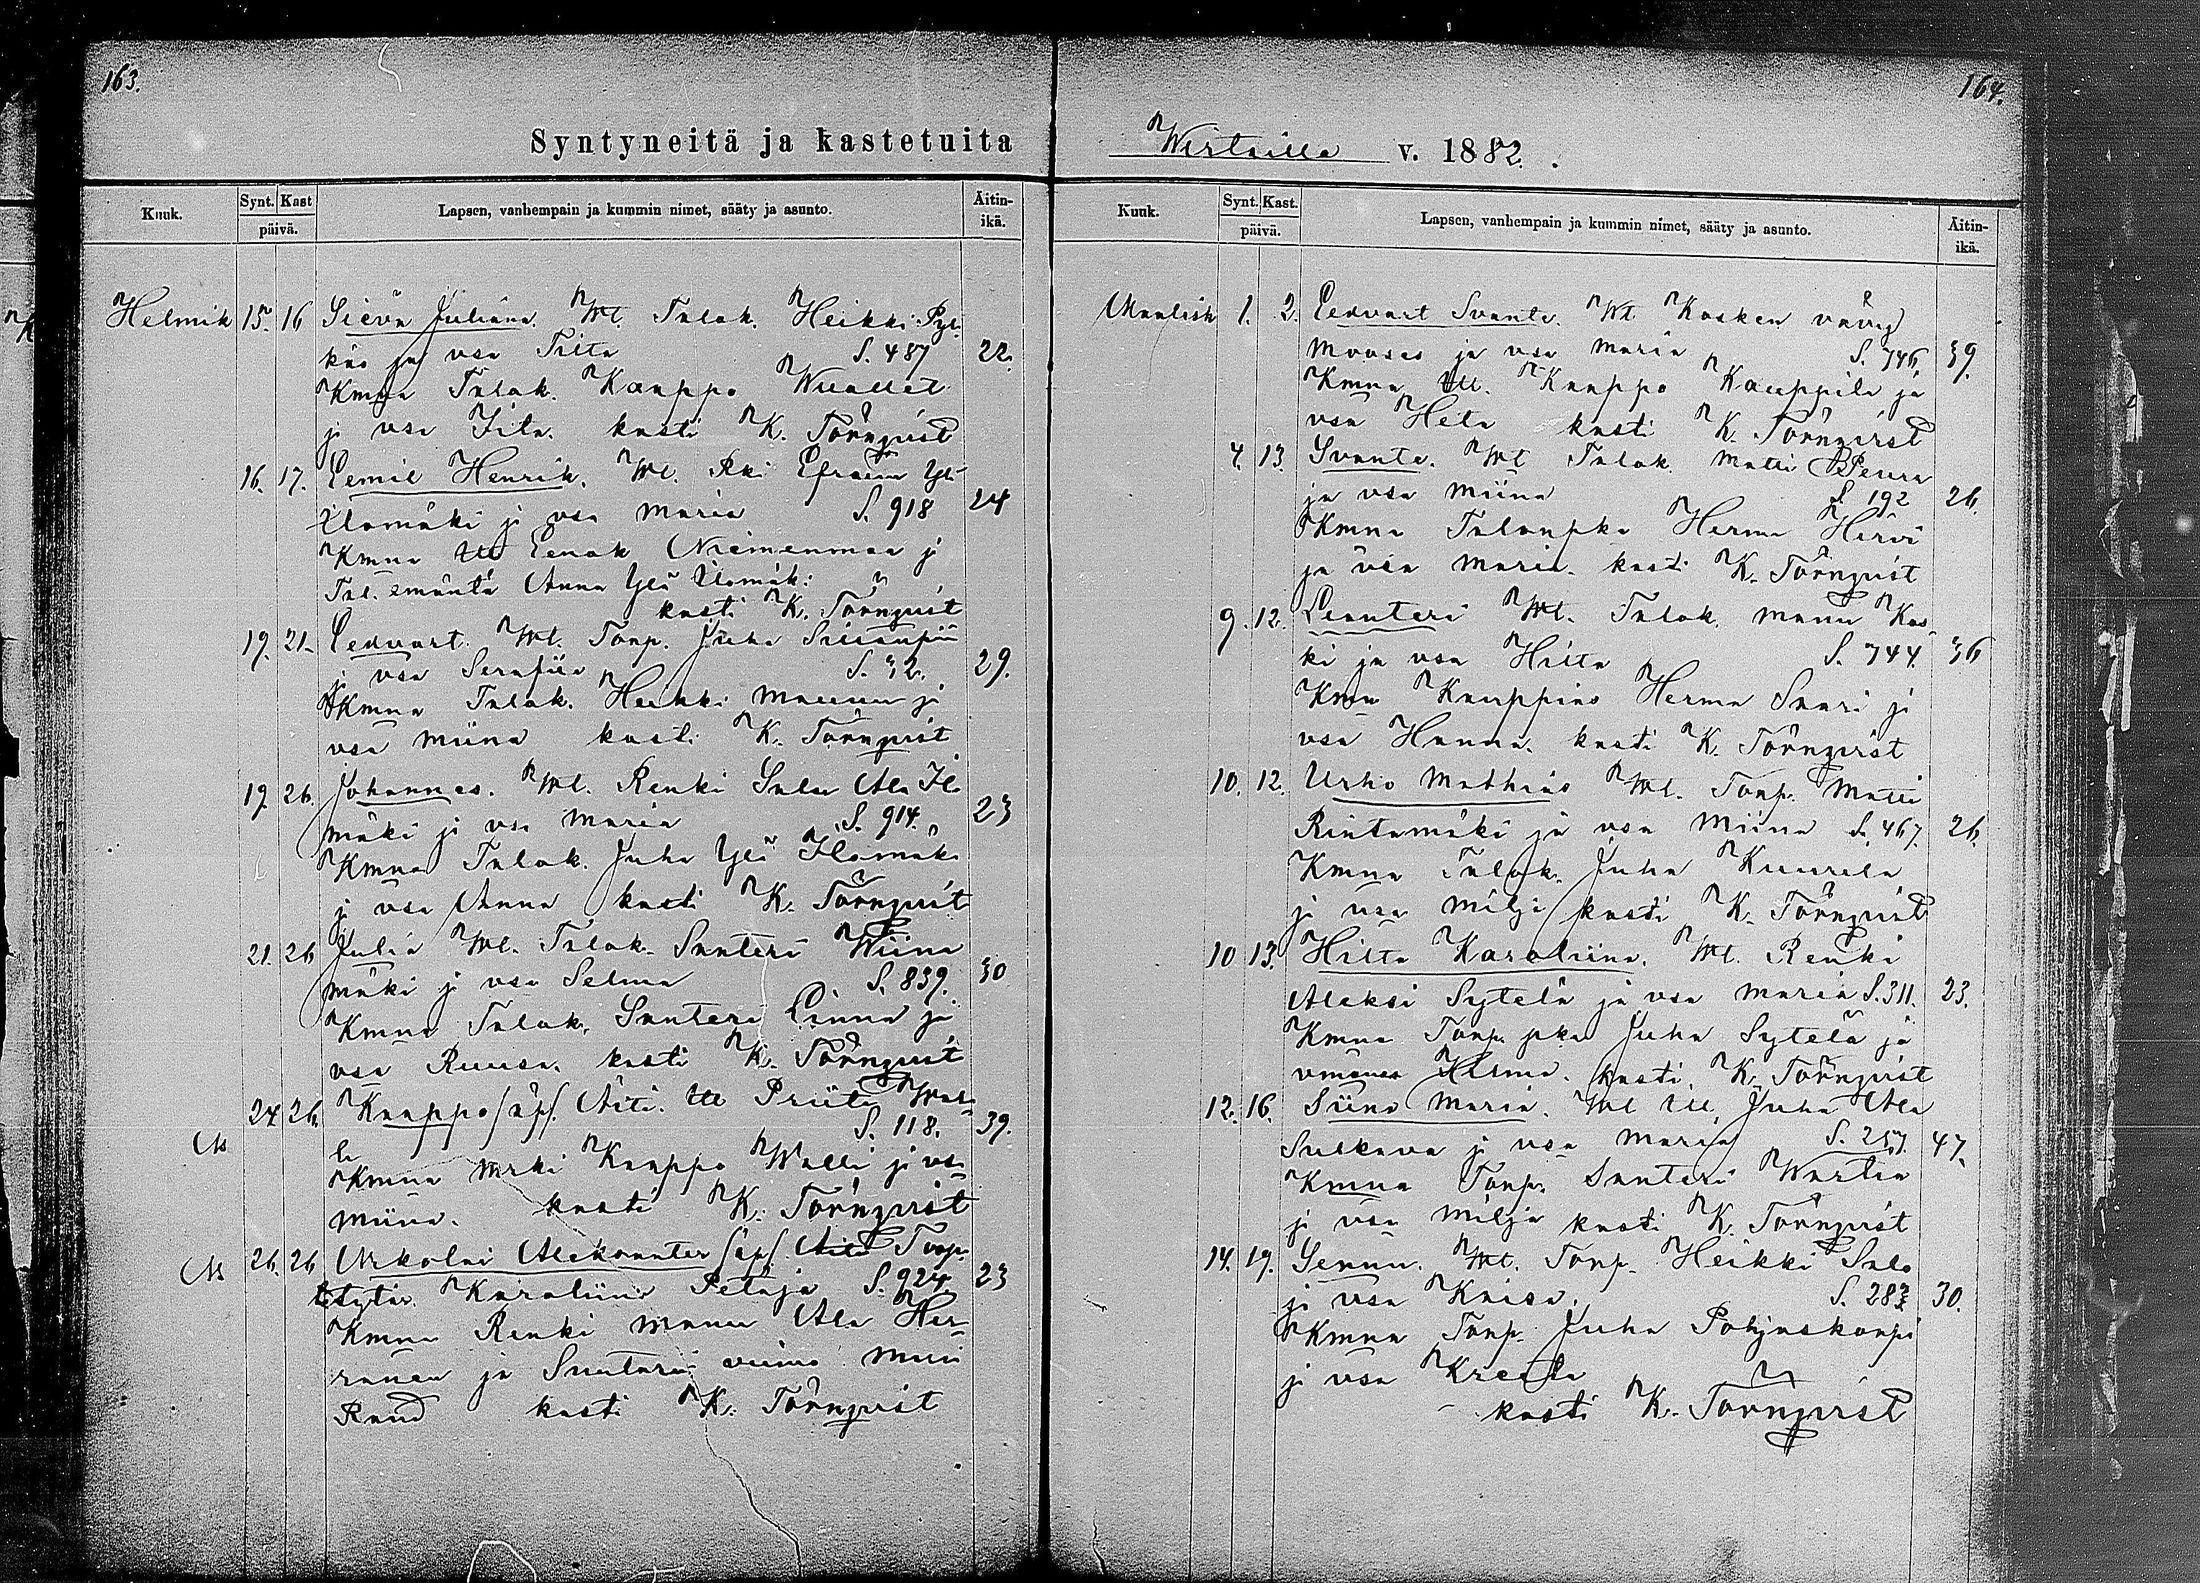 163.
Syntyneitä ja kastetuita
Kuuk.
Synt. Kast
päivä.
Lapsen, vanhempain ja kummin nimet, sääty ja asunto.
Äitin-
ikä.
Helmik 15. 16 Juliana. Wl. Talok. Heikki
ja vsa S. 487 22.
Kmna Talok. Kauppo
ja vsa kasti K. Törnqvist
16. 17. Eemil Henrik. Wl. Efraim Yli
Ilomäki ja vsa Maria S. 918 24
Kmna Eenok Niemenmaa ja
Tal. emäntä Anna Yli Ilomäki
kasti K. Törnqvist
19. 21. Eedvart. Wl. Torp. Juha
ja vsa Serafiia S. 32. 29.
Kmna Talok. Heikki ja
vsa Miina kasti K. Törnqvist
19. 26. Johannes. Wl. Renki Salu Ala Ilo
mäki ja vsa Maria S. 914. 23
Kmna Talok. Juha Yli Ilomäki
ja vsa Anna kasti K. Törnqvist
21. 26 Julia Wl. Talok. Santeri Wiina
mäki ja vsa Selma S. 839. 30
Kmna Talok. Santeri Linna ja
vsa Ruusa. kasti K. Törnqvist
24 26. Kaappo /äp/. Äiti. Priita Wal-
S. 118. 39.
Kmna Kaappo Walli ja vsa
Miina. kasti K. Törnqvist
26. 26 Nikolai Aleksanter /äp/. Äiti Torp.
tytär. Karoliina Petäjä S. 924. 23
Kmna Renki Manu Ala Her-
ranen ja Suutarin vaimo Mari
Rand kasti K. Törnqvist
164.
Wirtailla v. 1882.
Kuuk.
Synt. Kast.
päivä.
Lapsen, vanhempain ja kummin nimet, sääty ja asunto.
Äitin-
ikä.
Maalisk 1. 2. Eedvart Svante. Wl. Kosken vävy
Mooses ja vsa Maria S. 746. 39.
Kmna Kaappo Kauppila ja
vsa Heta kasti K. Törnqvist
4. 13. Svante. Wl Talok. Matti Peura
ja vsa Miina S. 192 26.
Kmna Talonpka Herma Hirvi
ja vsa Maria. kasti K. Törnqvist
9. 12. Santeri Wl. Talok. Manu Kos
ki ja vsa Hilta S. 744. 36
Kmna Kauppias Herma Saari ja
vsa Hanna. kasti K. Törnqvist
10. 12. Urho Mathias Wl. Torp. Matti
Rintamäki ja vsa Miina S. 467. 26.
Kmna Talok. Juha Kuurela
ja vsa Milja kasti K. Törnqvist
10 13. Hilta Karoliina. Wl. Renki
Aleksi Sytelä ja vsa Maria S. 311. 23.
Kmna Torp. pka Juha Sytelä ja
vmonsa kasti. K. Törnqvist
12. 16. Siina Maria. Wl Juha Ala
Sulkava ja vsa Maria S. 257. 47.
Kmna Torp. Santeri Wartia
ja vsa Milja kasti K. Törnqvist
14. 19. Sennu. Wl. Torp. Heikki Salo
ja vsa Kaisa. S. 283 30.
Kmna Torp. Juha Pohjaskorpi
ja vsa Kreeta
kasti K. Törnqvist